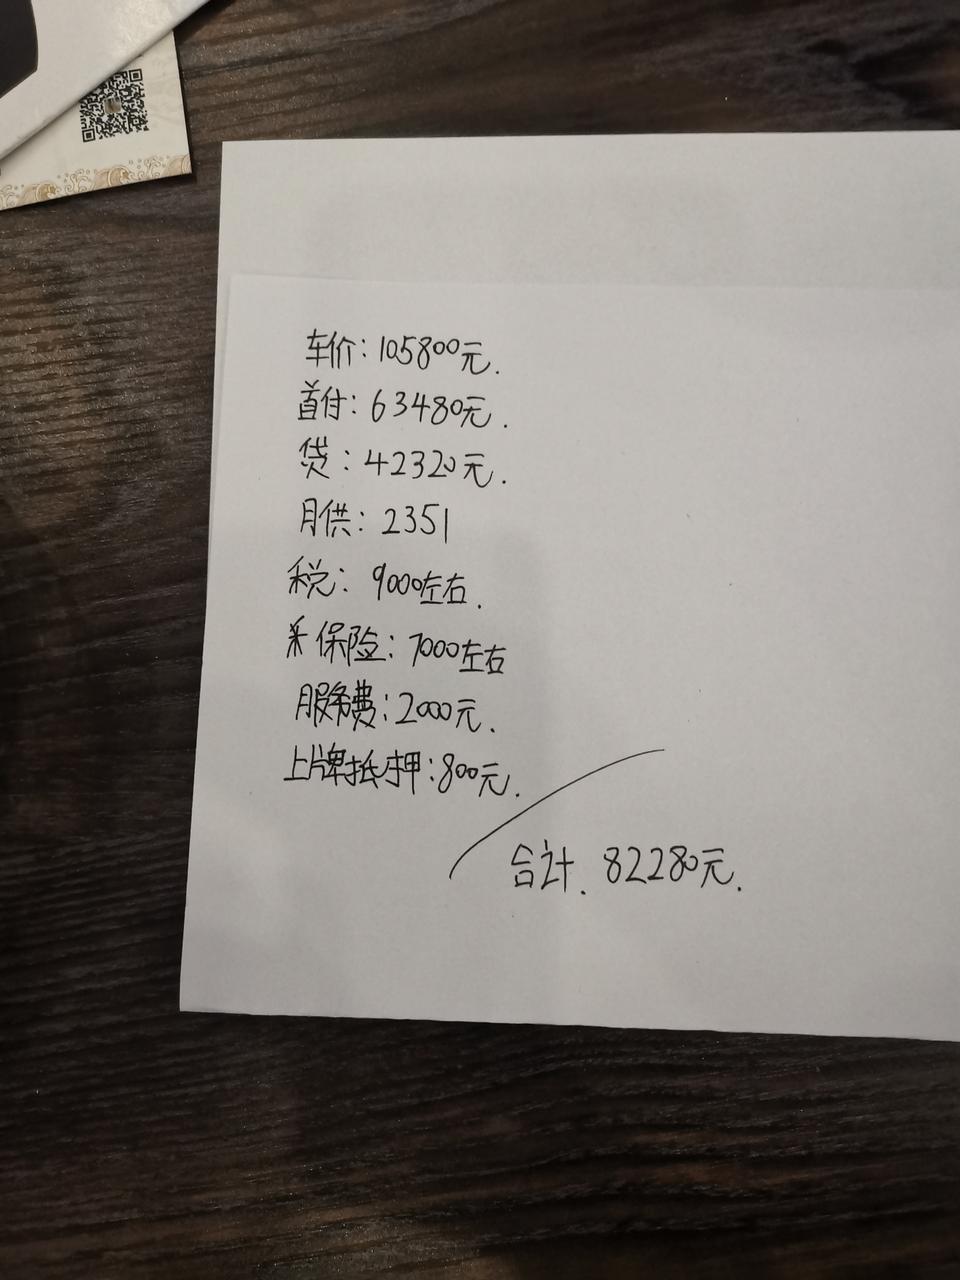 车价：105800元.
首付：63480元.
贷：42320元.
月供：2351
税：9000左右.
保险：7000左右
服务费：2000元.
上牌抵押：800元.
合计.82280元.